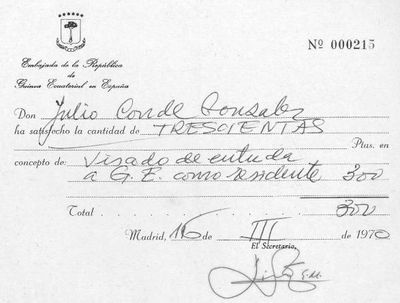 Nº 000215
Embajada de la República
de
Guinea Ecuatorial en España
Don Julio Conde Gonzalez
ha satisfecho la cantidad de TRESCIENTAS
Ptas. en
concepto de: Visado de entrada
a G. E. como residente 300
Total 300
Madrid, 16 de III de 1970
El Secretario,